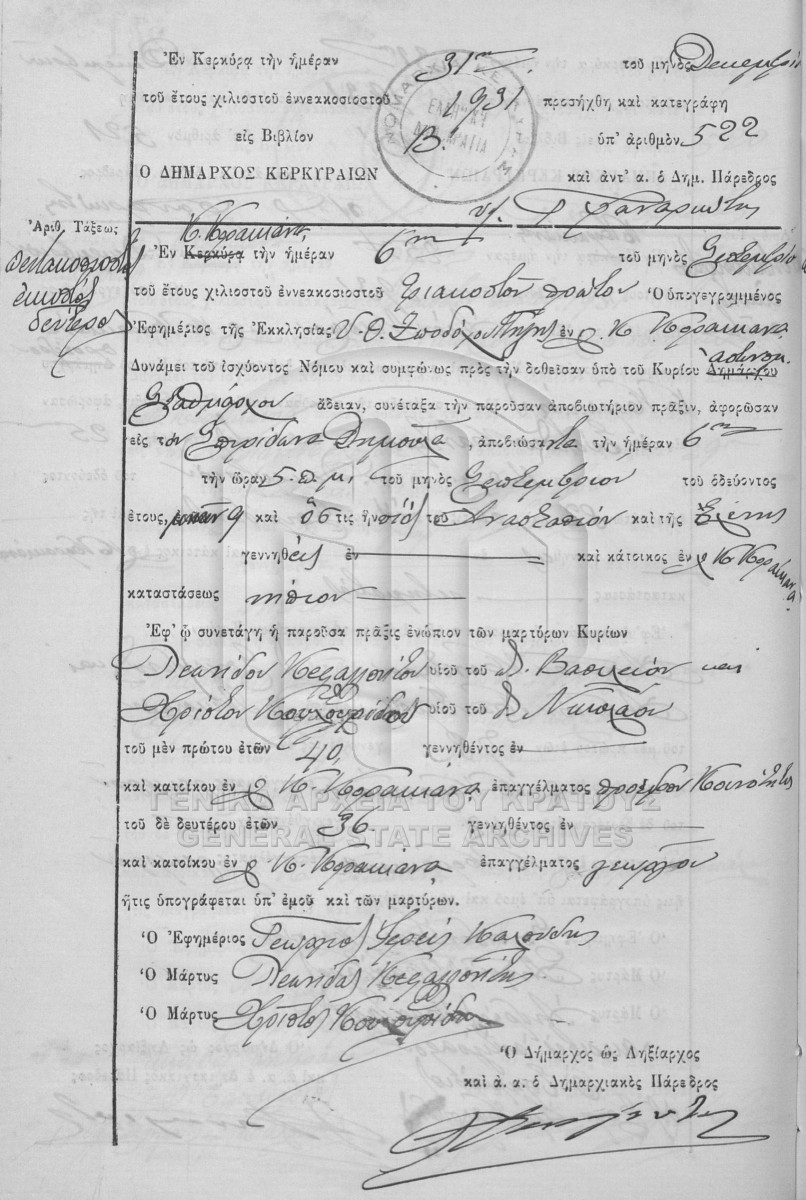 Ἐν Κερκύρᾳ τὴν ἡμέραν 31ην τοῦ μηνὸς Δεκεμβρίου
τοῦ ἔτους χιλιοστοῦ ἐννεακοσιοστοῦ 1931 προσήχθη καὶ κατεγράφη
εἰς Βιβλίον Β. ὑπ' ἀριθμὸν 522
Ο ΔΗΜΑΡΧΟΣ ΚΕΡΚΥΡΑΙΩΝ καὶ ἀντ' α. ὁ Δημ. Πάρεδρος
Ἀριθ. Τάξεως
πεντακοσιοστὸς
εἰκοστὸς
δεύτερος
Κ. Κορακιάνα
Ἐν Κερκύρᾳ τὴν ἡμέραν 6ην τοῦ μηνὸς Σεπτεμβρίου
τοῦ ἔτους χιλιοστοῦ ἐννεακοσιοστοῦ τριακοστοῦ πρώτου Ὁ ὑπογεγραμμένος
Ἐφημέριος τῆς Ἐκκλησίας Υ. Θ. Ζωοδόχου Πηγῆς ἐν Κ. Κορακιάνα
Δυνάμει τοῦ ἰσχύοντος Νόμου καὶ συμφώνως πρὸς τὴν δοθεῖσαν ὑπὸ τοῦ Κυρίου Δημάρχου ἀστυνομ.
Σταθμάρχου ἄδειαν, συνέταξα τὴν παροῦσαν ἀποβιωτήριον πρᾶξιν, ἀφορῶσαν
εἰς τὸν Σπυρίδωνα, ἀποβιώσαντα τὴν ἡμέραν 6ην
τὴν ὥραν 5. π. μ. τοῦ μηνὸς Σεπτεμβρίου τοῦ ὁδεύοντος
ἔτους, μηνῶν 9 καὶ ὅστις ἦν υἱὸς τοῦ Ἀναστασίου καὶ τῆς Ἑλένης
γεννηθεὶς ἐν καὶ κάτοικος ἐν Κ. Κορακιάνα
καταστάσεως νήπιον
Ἐφ' ᾧ συνετάγη ἡ παροῦσα πρᾶξις ἐνώπιον τῶν μαρτύρων Κυρίων
Λεωνίδου Κεφαλλωνίτου υἱοῦ τοῦ Βασιλείου καὶ
Χρίστου υἱοῦ τοῦ Νικολάου
τοῦ μὲν πρώτου ἐτῶν 40, γεννηθέντος ἐν
καὶ κατοίκου ἐν Κ. Κορακιάνα ἐπαγγέλματος προέδρου Κοινότητος
τοῦ δὲ δευτέρου ἐτῶν 36. γεννηθέντος ἐν
καὶ κατοίκου ἐν Κ. Κορακιάνα ἐπαγγέλματος γεωργοῦ
ἥτις ὑπογράφεται ὑπ' ἐμοῦ καὶ τῶν μαρτύρων.
Ὁ Ἐφημέριος Γεώργιος Ἱερεὺς
Ὁ Μάρτυς Λεωνίδας Κεφαλλωνίτης
Ὁ Μάρτυς Χρίστος
Ὁ Δήμαρχος ὡς Ληξίαρχος
καὶ ἀ. α. ὁ Δημαρχιακὸς Πάρεδρος
ΓΕΝΙΚΑ ΑΡΧΕΙΑ ΤΟΥ ΚΡΑΤΟΥΣ
GENERAL STATE ARCHIVES